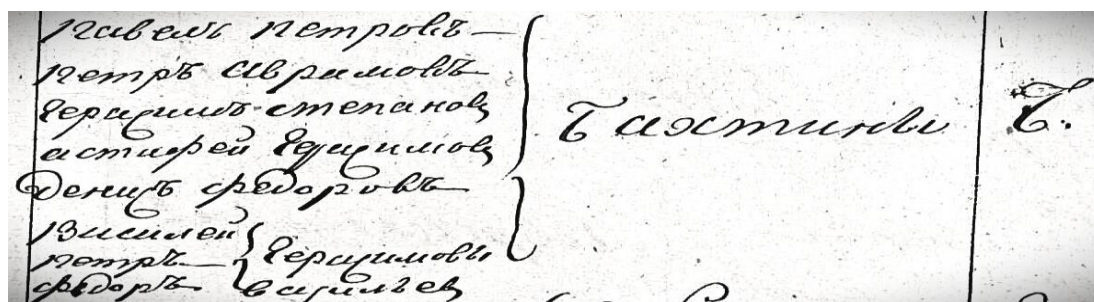 Павелъ Петровъ
Петръ Аврамовъ
Герасимъ Степановъ
Астифей Герасимовъ
Денисъ Федоровъ
Василей
Петръ Герасимовы
Федоръ Васильевъ